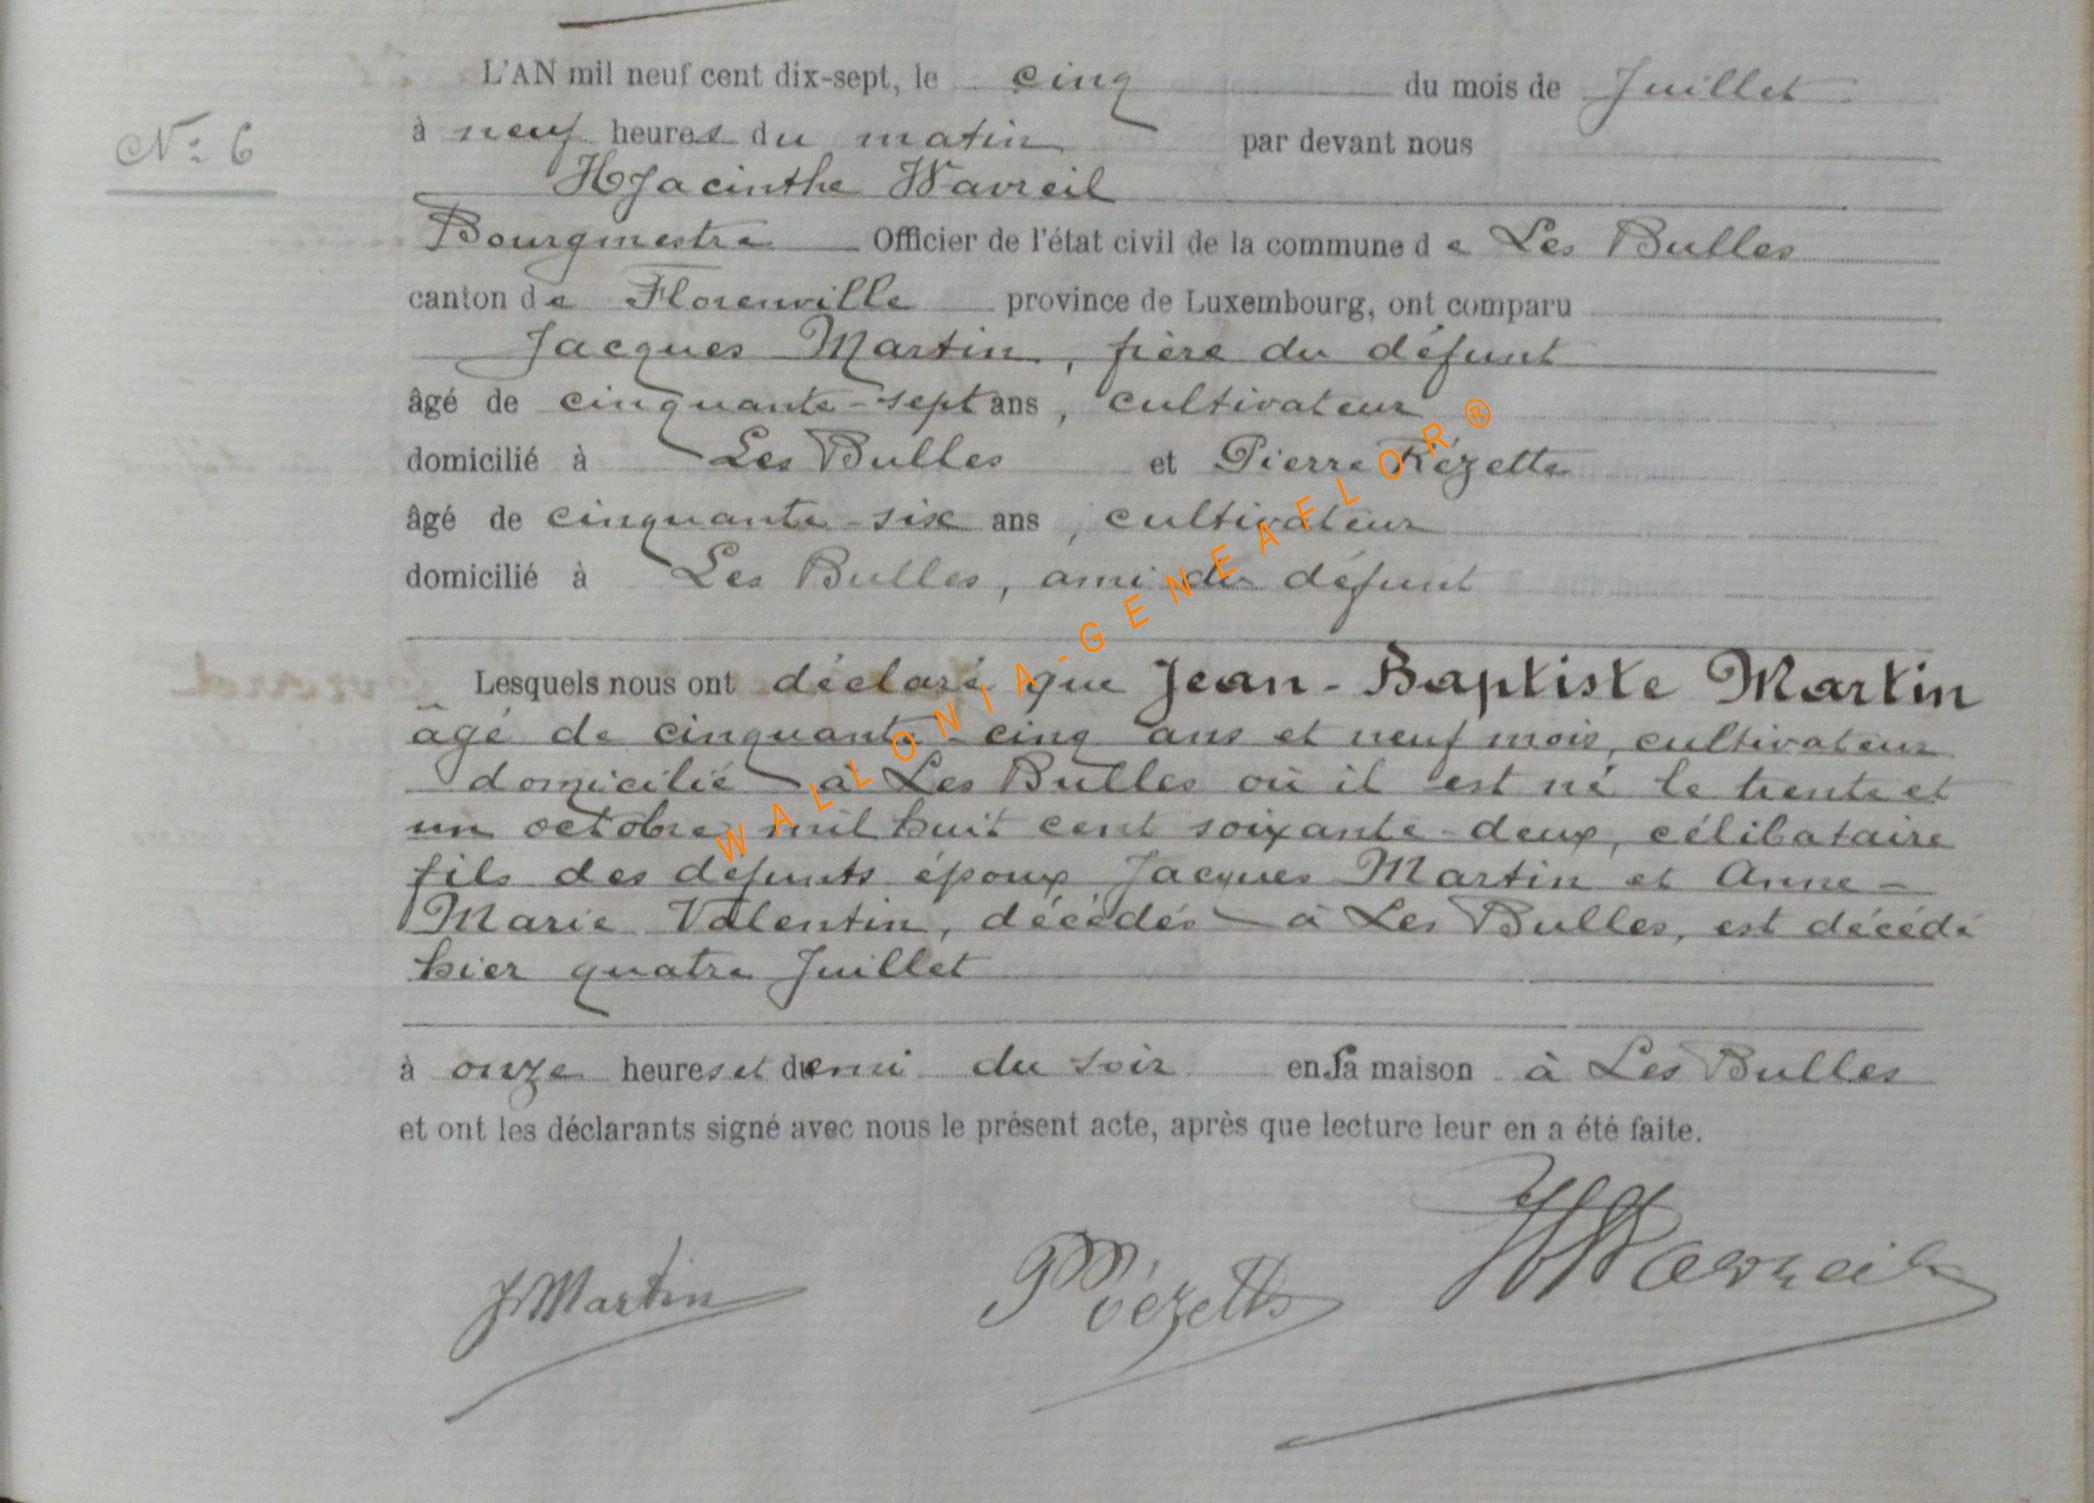 L'AN mil neuf cent dix-sept, le cinq du mois de Juillet
N° 6
à neuf heures du matin par devant nous
Hyacinthe Wavreil
Bourgmestre Officier de l'état civil de la commune de Les Bulles
canton de Florenville province de Luxembourg, ont comparu
Jacques Martin, frère du défunt
âgé de cinquante-sept ans, cultivateur
domicilié à Les Bulles et Pierre Rézette
âgé de cinquante-six ans, cultivateur
domicilié à Les Bulles, ami du défunt
WALLONIA-GENEAFLOR®
Lesquels nous ont déclaré que Jean-Baptiste Martin
âgé de cinquante-cinq ans et neuf mois, cultivateur
domicilié à Les Bulles où il est né le trente et
un octobre mil huit cent soixante-deux, célibataire
fils des défunts époux Jacques Martin et Anne-
Marie Valentin, décédés à Les Bulles, est décédé
hier quatre Juillet
à onze heures et demi du soir en sa maison à Les Bulles
et ont les déclarants signé avec nous le présent acte, après que lecture leur en a été faite.
J. Martin P. Rézette H. Wavreil